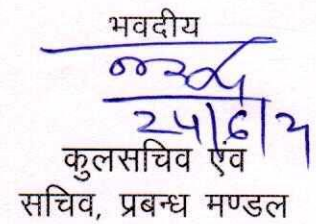 भवदीय
कुलसचिव एवं
सचिव, प्रबन्ध मण्डल